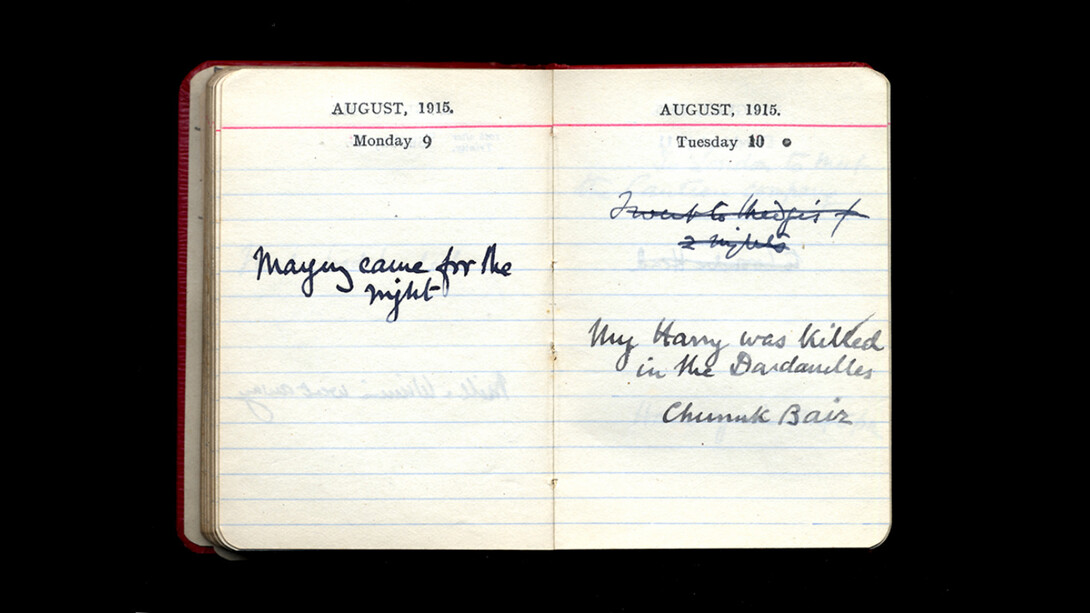 AUGUST, 1915.
Monday 9
Mayny came for the
night
AUGUST, 1915.
Tuesday 10
I went to Madge's
2 nights
My Harry was killed
in the Dardanelles
Chunuk Bair